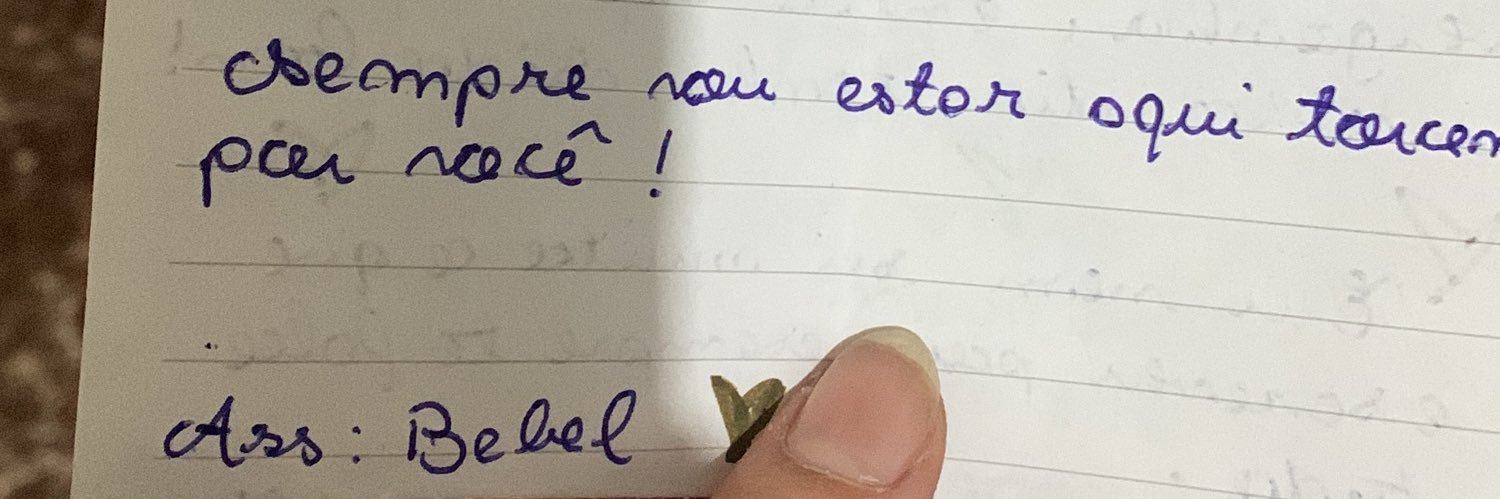 Sempre vou estar aqui torcen
por você!
Ass: Bebel